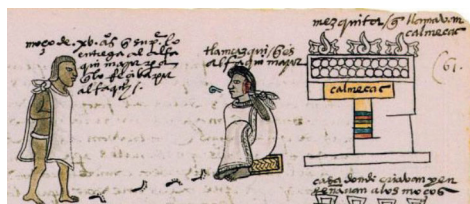 moço de .xv. años q̃ su pᵉ. lo
entrega al alfa
qui mayor
alfaqui /.
tlamazqui / q̃ es
alfaqui mayor
mezquita / q̃ llamavan
calmecac
calmecac
61.
casa donde criavan y en
señavan a los moços